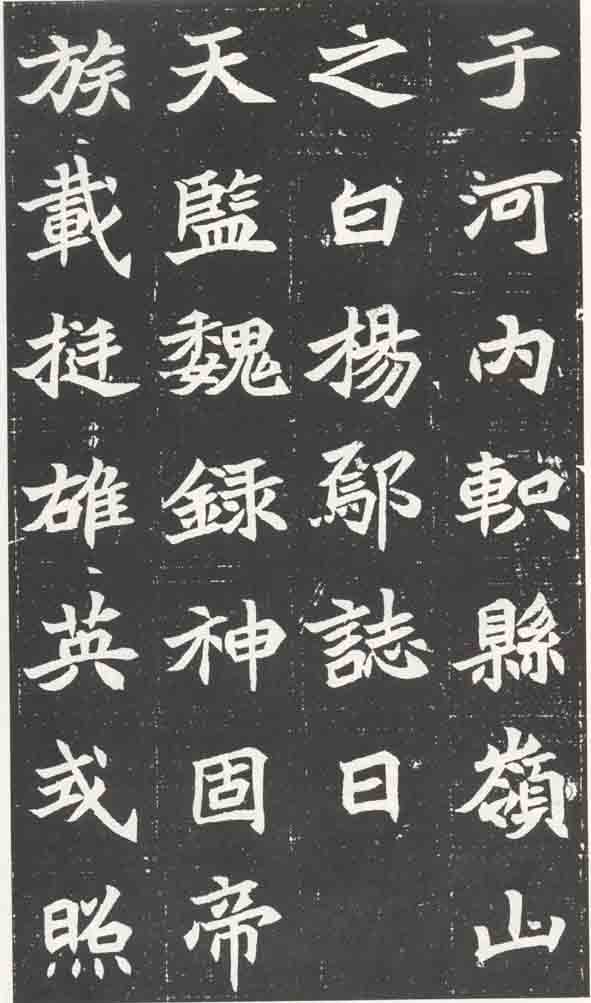 于河内軹縣嶺山
之白楊鄔誌曰
天監魏録神固帝
族載挺雄英或照